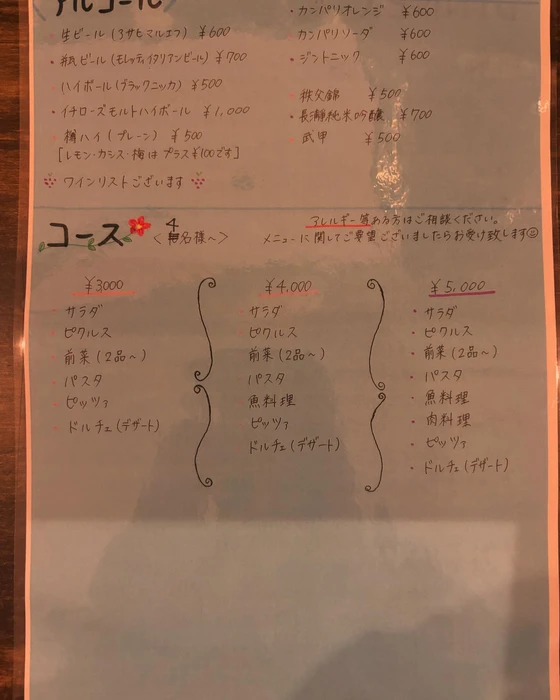 アルコール
生ビール (アサヒマルエフ) ¥600
・瓶ビール (モレッティイタリアンビール) ¥700
ハイボール (ブラックニッカ) ¥500
・イチローズモルトハイボール ¥1,000
樽ハイ (プレーン) ¥500
[レモン・カシス・梅はプラス¥100です]
ワインリストございます
・カンパリオレンジ ¥600
カンパリソーダ ¥600
・ジントニック ¥600
秩父錦 ¥500
・長瀞純米吟醸 ¥700
武甲 ¥500
コース
〈4名様〜〉
アレルギー等ある方はご相談ください。
メニューに関してご要望ございましたらお受け致します☺
¥3,000
サラダ
ピクルス
前菜 (2品〜)
パスタ
ピッツァ
ドルチェ (デザート)
¥4,000
サラダ
ピクルス
前菜 (2品〜)
パスタ
魚料理
ピッツァ
ドルチェ (デザート)
¥5,000
・サラダ
・ピクルス
・前菜 (2品〜)
・パスタ
・魚料理
・肉料理
・ピッツァ
・ドルチェ (デザート)